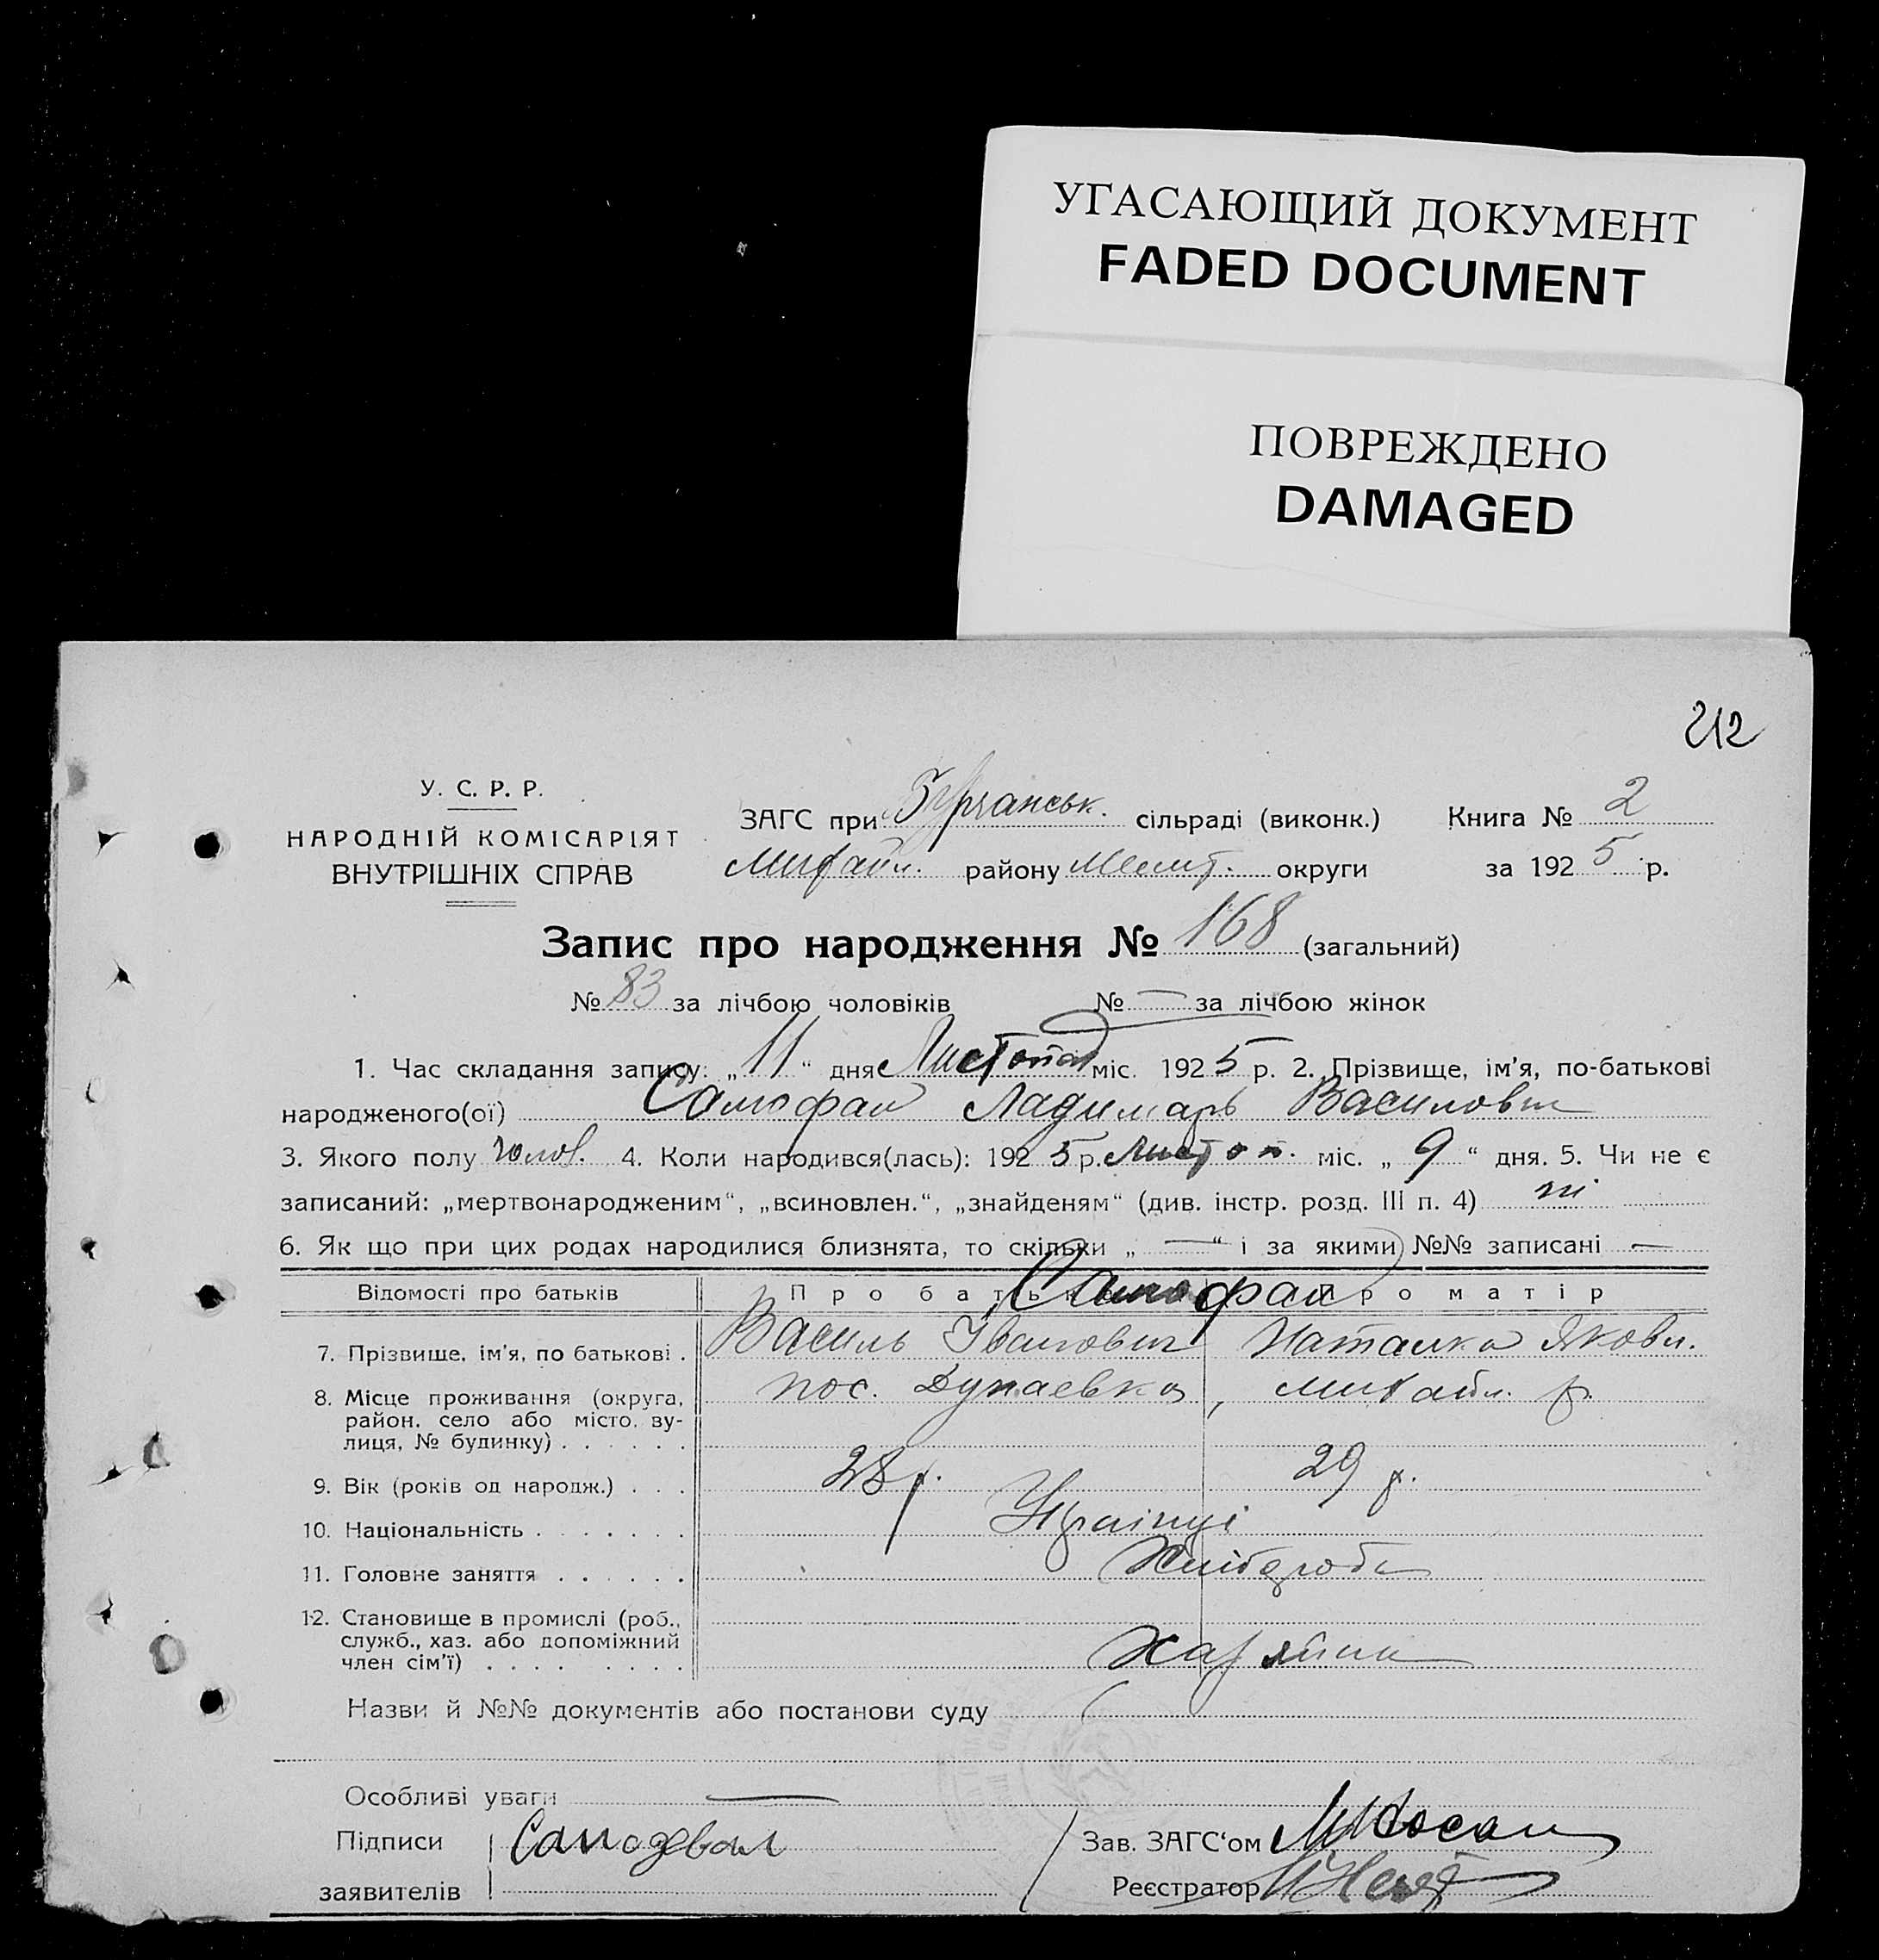 УГАСАЮЩИЙ ДОКУМЕНТ
FADED DOCUMENT
ПОВРЕЖДЕНО
DAMAGED
212
У. С. Р. Р.
НАРОДНІЙ КОМІСАРІЯТ
ВНУТРІШНІХ СПРАВ
ЗАГС при Бурчанськ. сільраді (виконк.) Книга № 2
Михайл. району Меліт. округи за 1925 р.
Запис про народження № 168 (загальний)
№ 83 за лічбою чоловіків № — за лічбою жінок
1. Час складання запису: „11“ дня Листопад міс. 1925 р. 2. Прізвище, ім'я, по-батькові
народженого(ої) Самофал Ладимарь Василович
3. Якого полу чолов. 4. Коли народився(лась): 1925 р. Листоп. міс. „9“ дня. 5. Чи не є
записаний: „мертвонародженим“, „всиновлен.“, „знайденям“ (див. інстр. розд. III п. 4) ні
6. Як що при цих родах народилися близнята, то скільки „—“ і за якими №№ записані —
Відомості про батьків Про батька Про матір
Самофал
7. Прізвище, ім'я, по батькові . Василь Іванович Наталка Яковл.
8. Місце проживання (округа, район, село або місто, вулиця, № будинку) . . . . . . пос. Дунаевка, Михайл. р.
9. Вік (років од народж.) . . . 28 р. 29 р.
10. Національність . . . . . . . Українці
11. Головне заняття . . . . . . Хлібороби
12. Становище в промислі (роб., служб., хаз. або допоміжний член сім'ї) . . . . . . . . Хазяїни
Назви й №№ документів або постанови суду
Особливі уваги —
Підписи
заявителів
Зав. ЗАГС'ом
Реєстратор